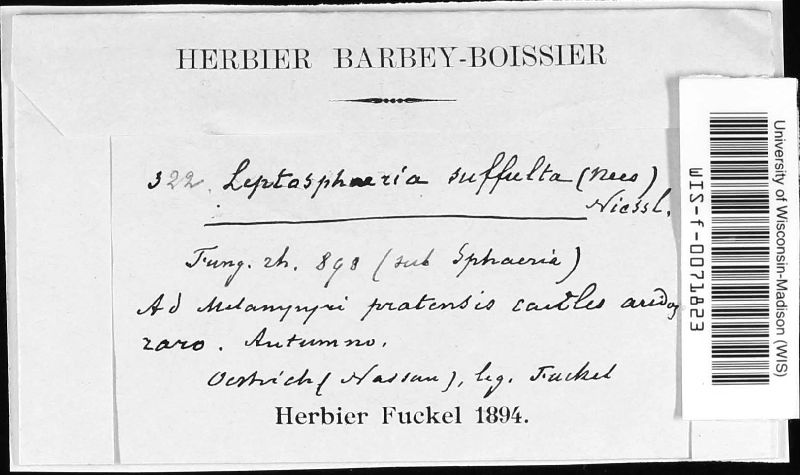 HERBIER BARBEY-BOISSIER
322. Leptosphaeria suffulta (Nees)
Niessl.
Fung. rh. 898 (sub Sphaeria)
Ad Melampyri pratensis caules aridos
raro. Autumno.
Oestrich (Nassau), leg. Fuckel
Herbier Fuckel 1894.
University of Wisconsin-Madison (WIS)
WIS-f-0071823